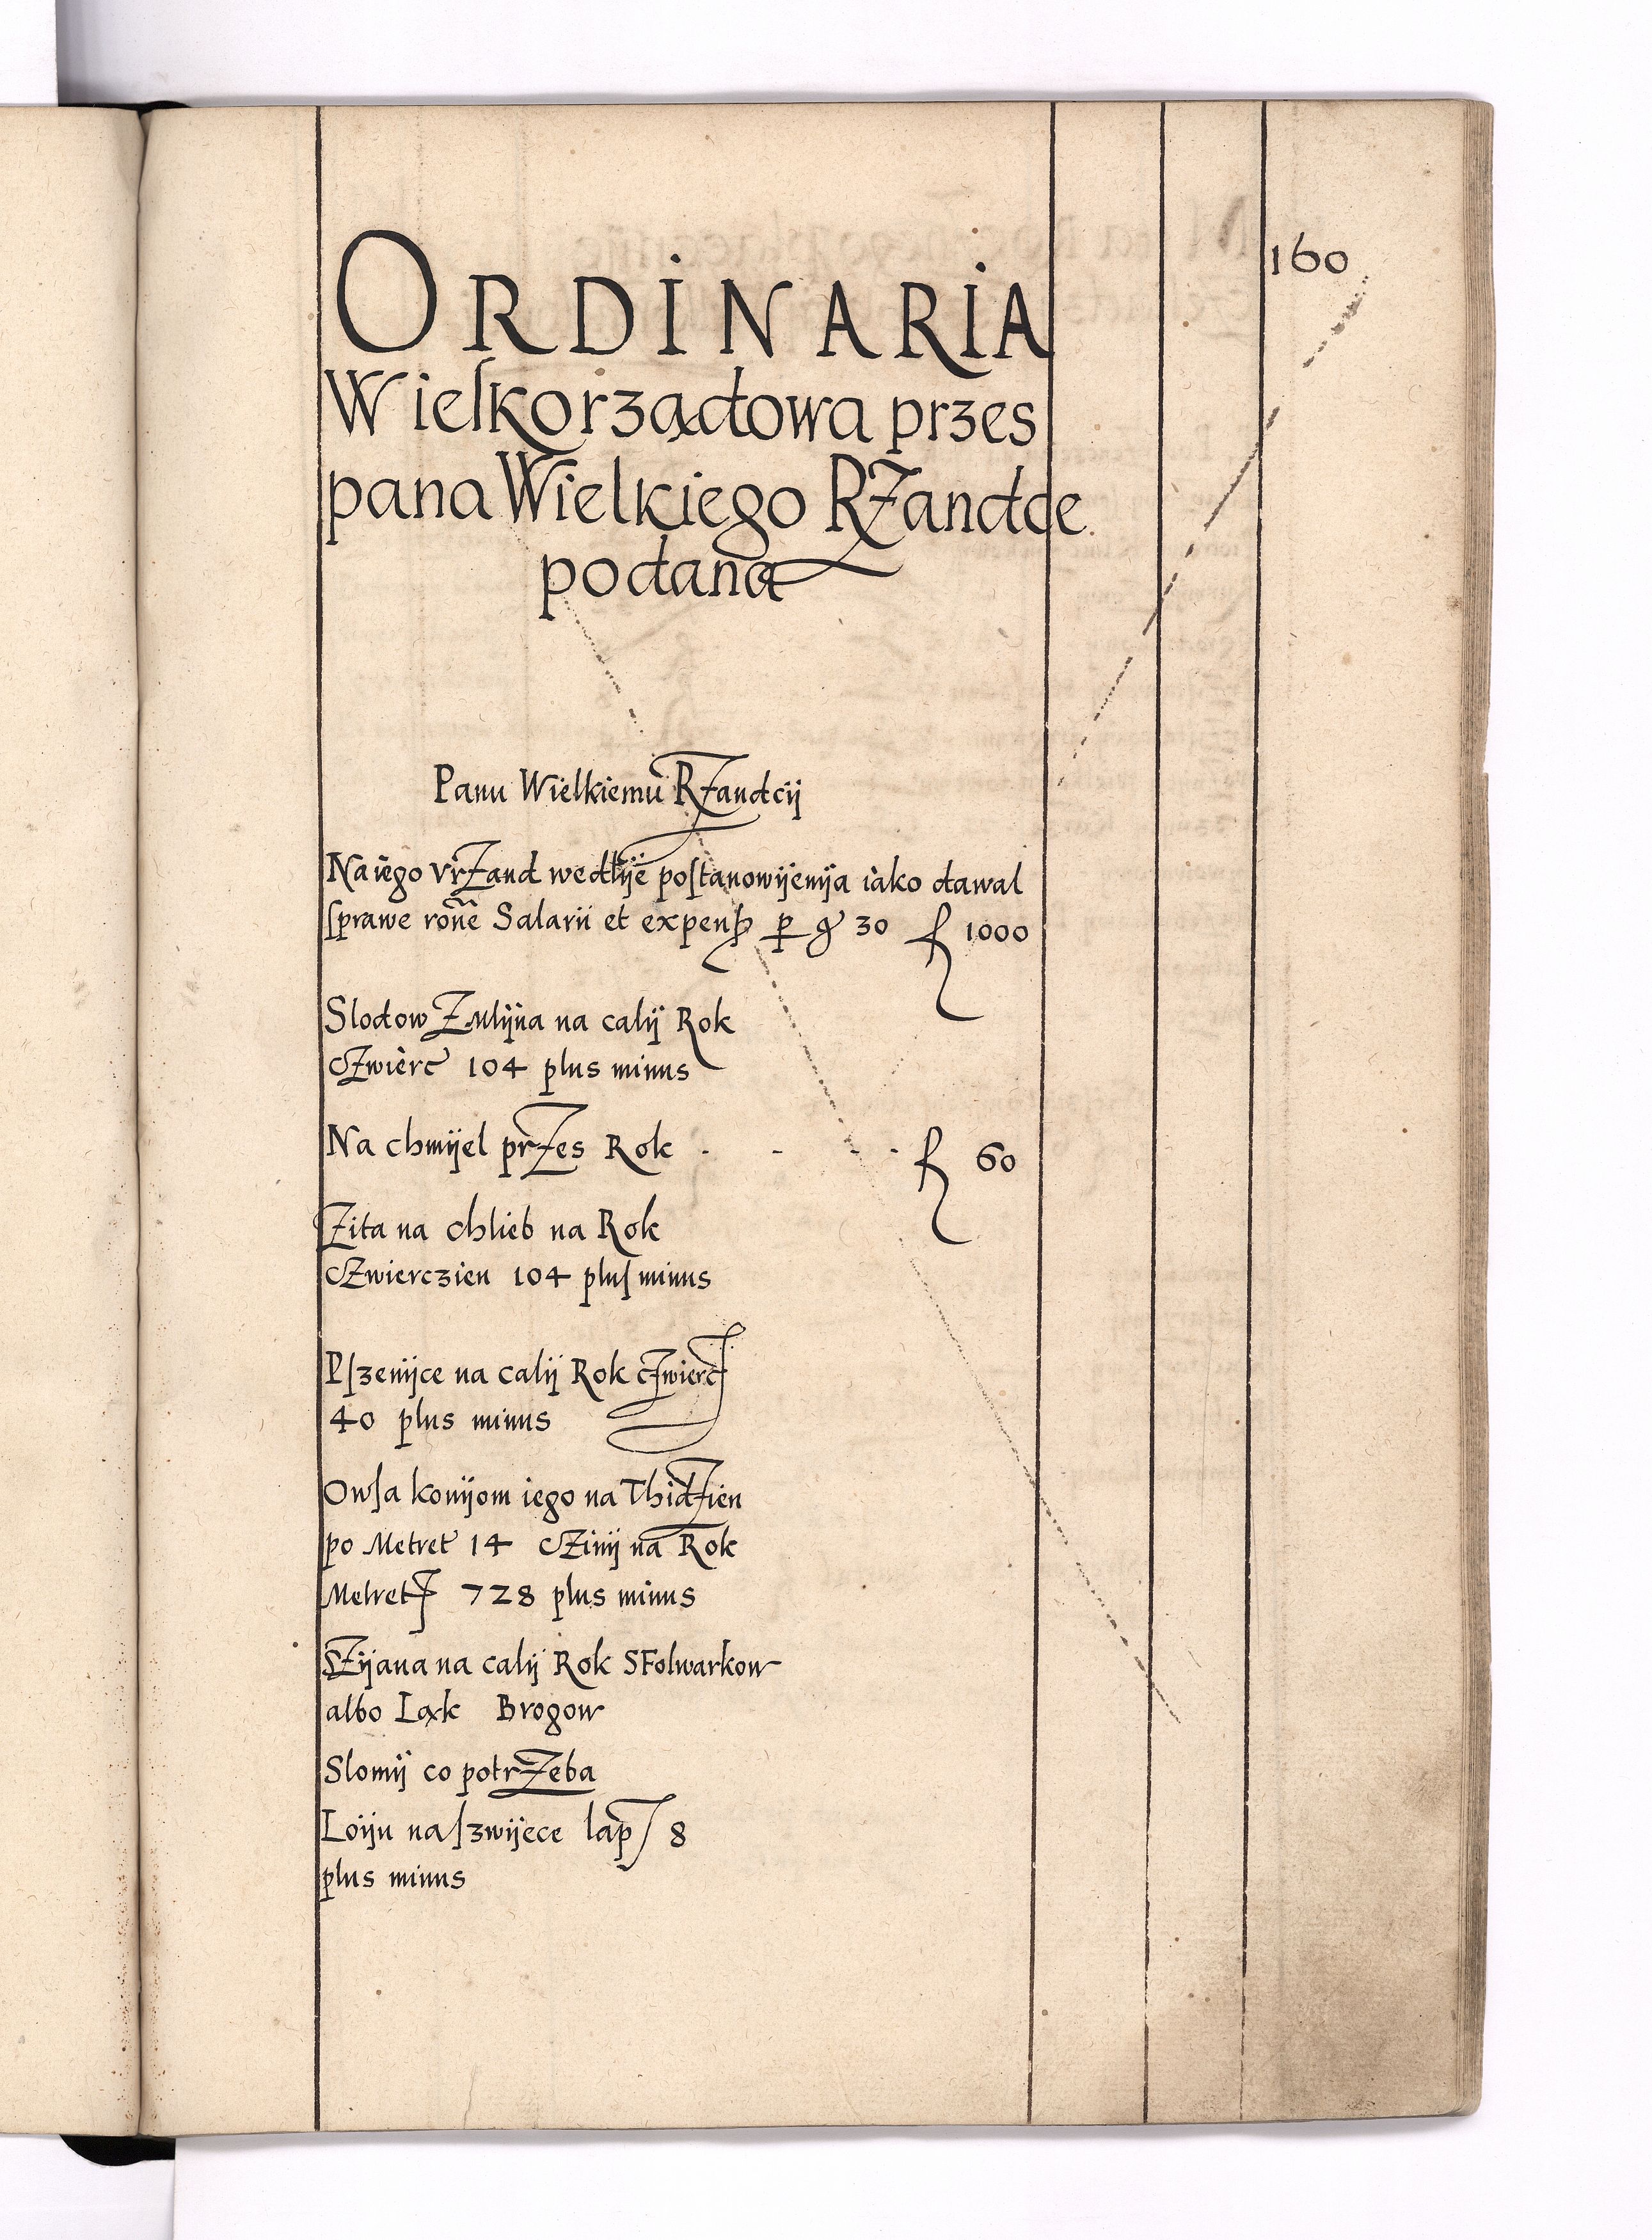 160
ORDINARIA
Wielkorządowa przes
pana Wielkiego RZandce
podana
Panu Wielkiemu RZandcij
Na iego vrZand wedlije poſtanowijenija iako dawal
ſprawe rone Salarii et expens 30 f 1000
Slodow Zmlijna na calij Rok
cZwierc 104 plus minus
Na chmijel prZes Rok - - - - f 60
Zita na chlieb na Rok
cZwierczien 104 pluſ minus
Pſzenijce na calij Rok cZwierc
40 plus minus
Owſa konijom iego na ThidZien
po Metret 14 cZinij na Rok
Metret 728 plus minus
SZijana na calij Rok SFolwarkow
albo Ląk Brogow
Slomij co potrZeba
Loiju na ſzwijece lap 8
plus minus